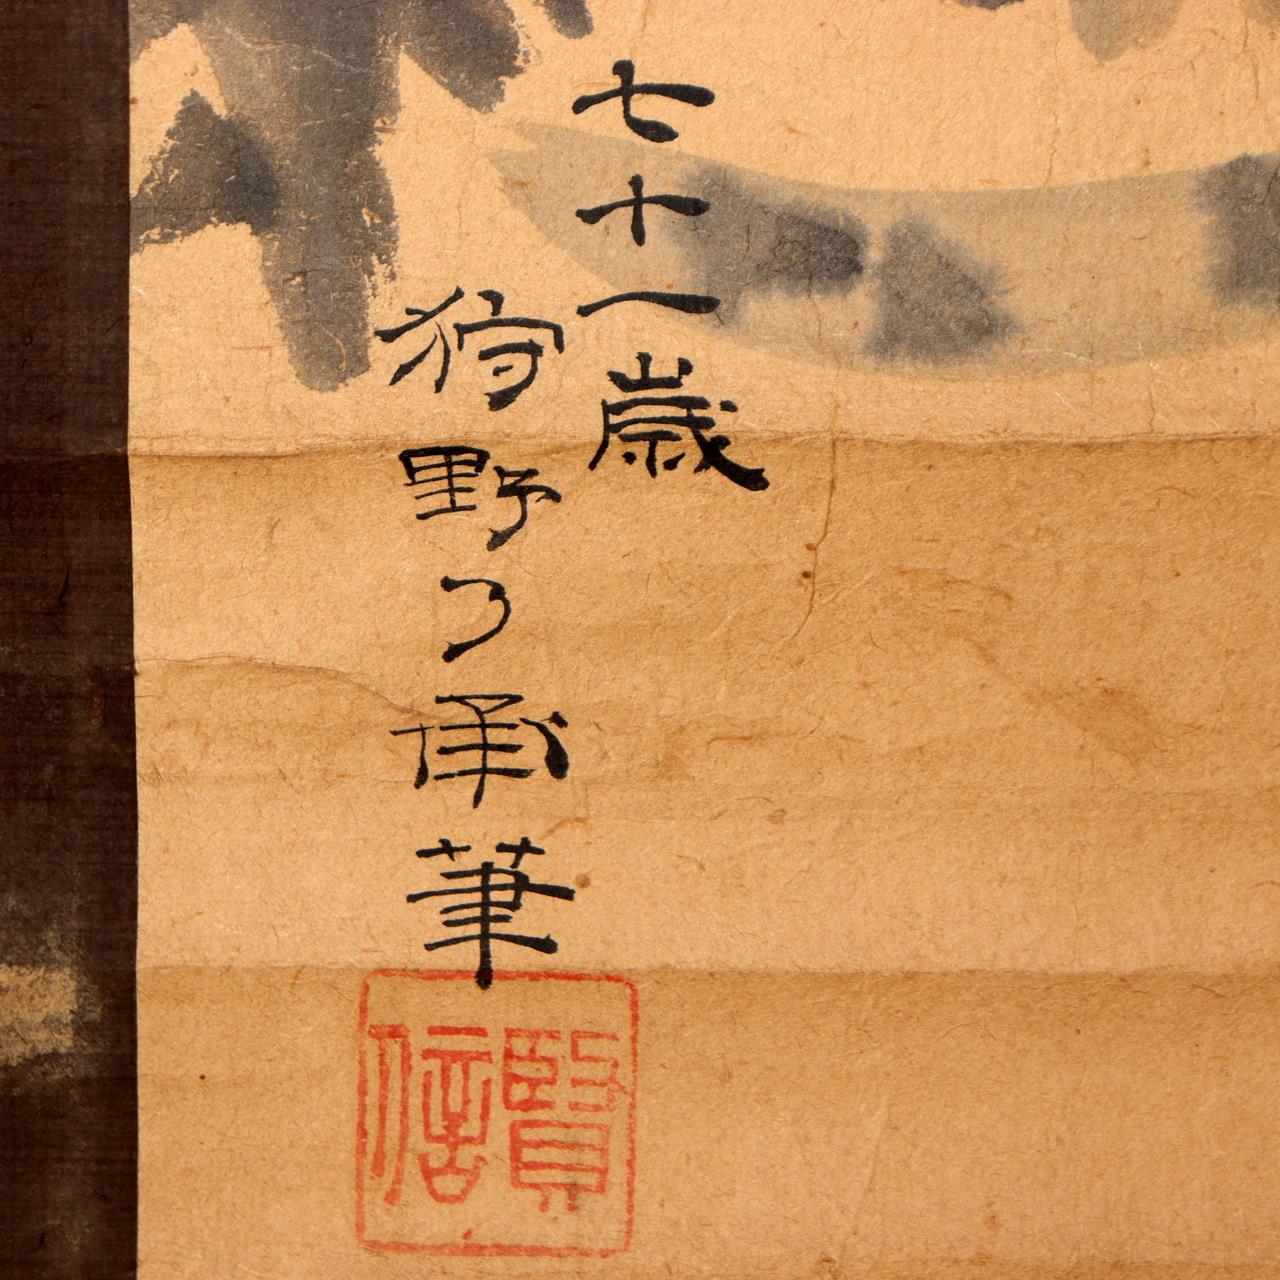 七十一歳
狩野了承筆
賢信